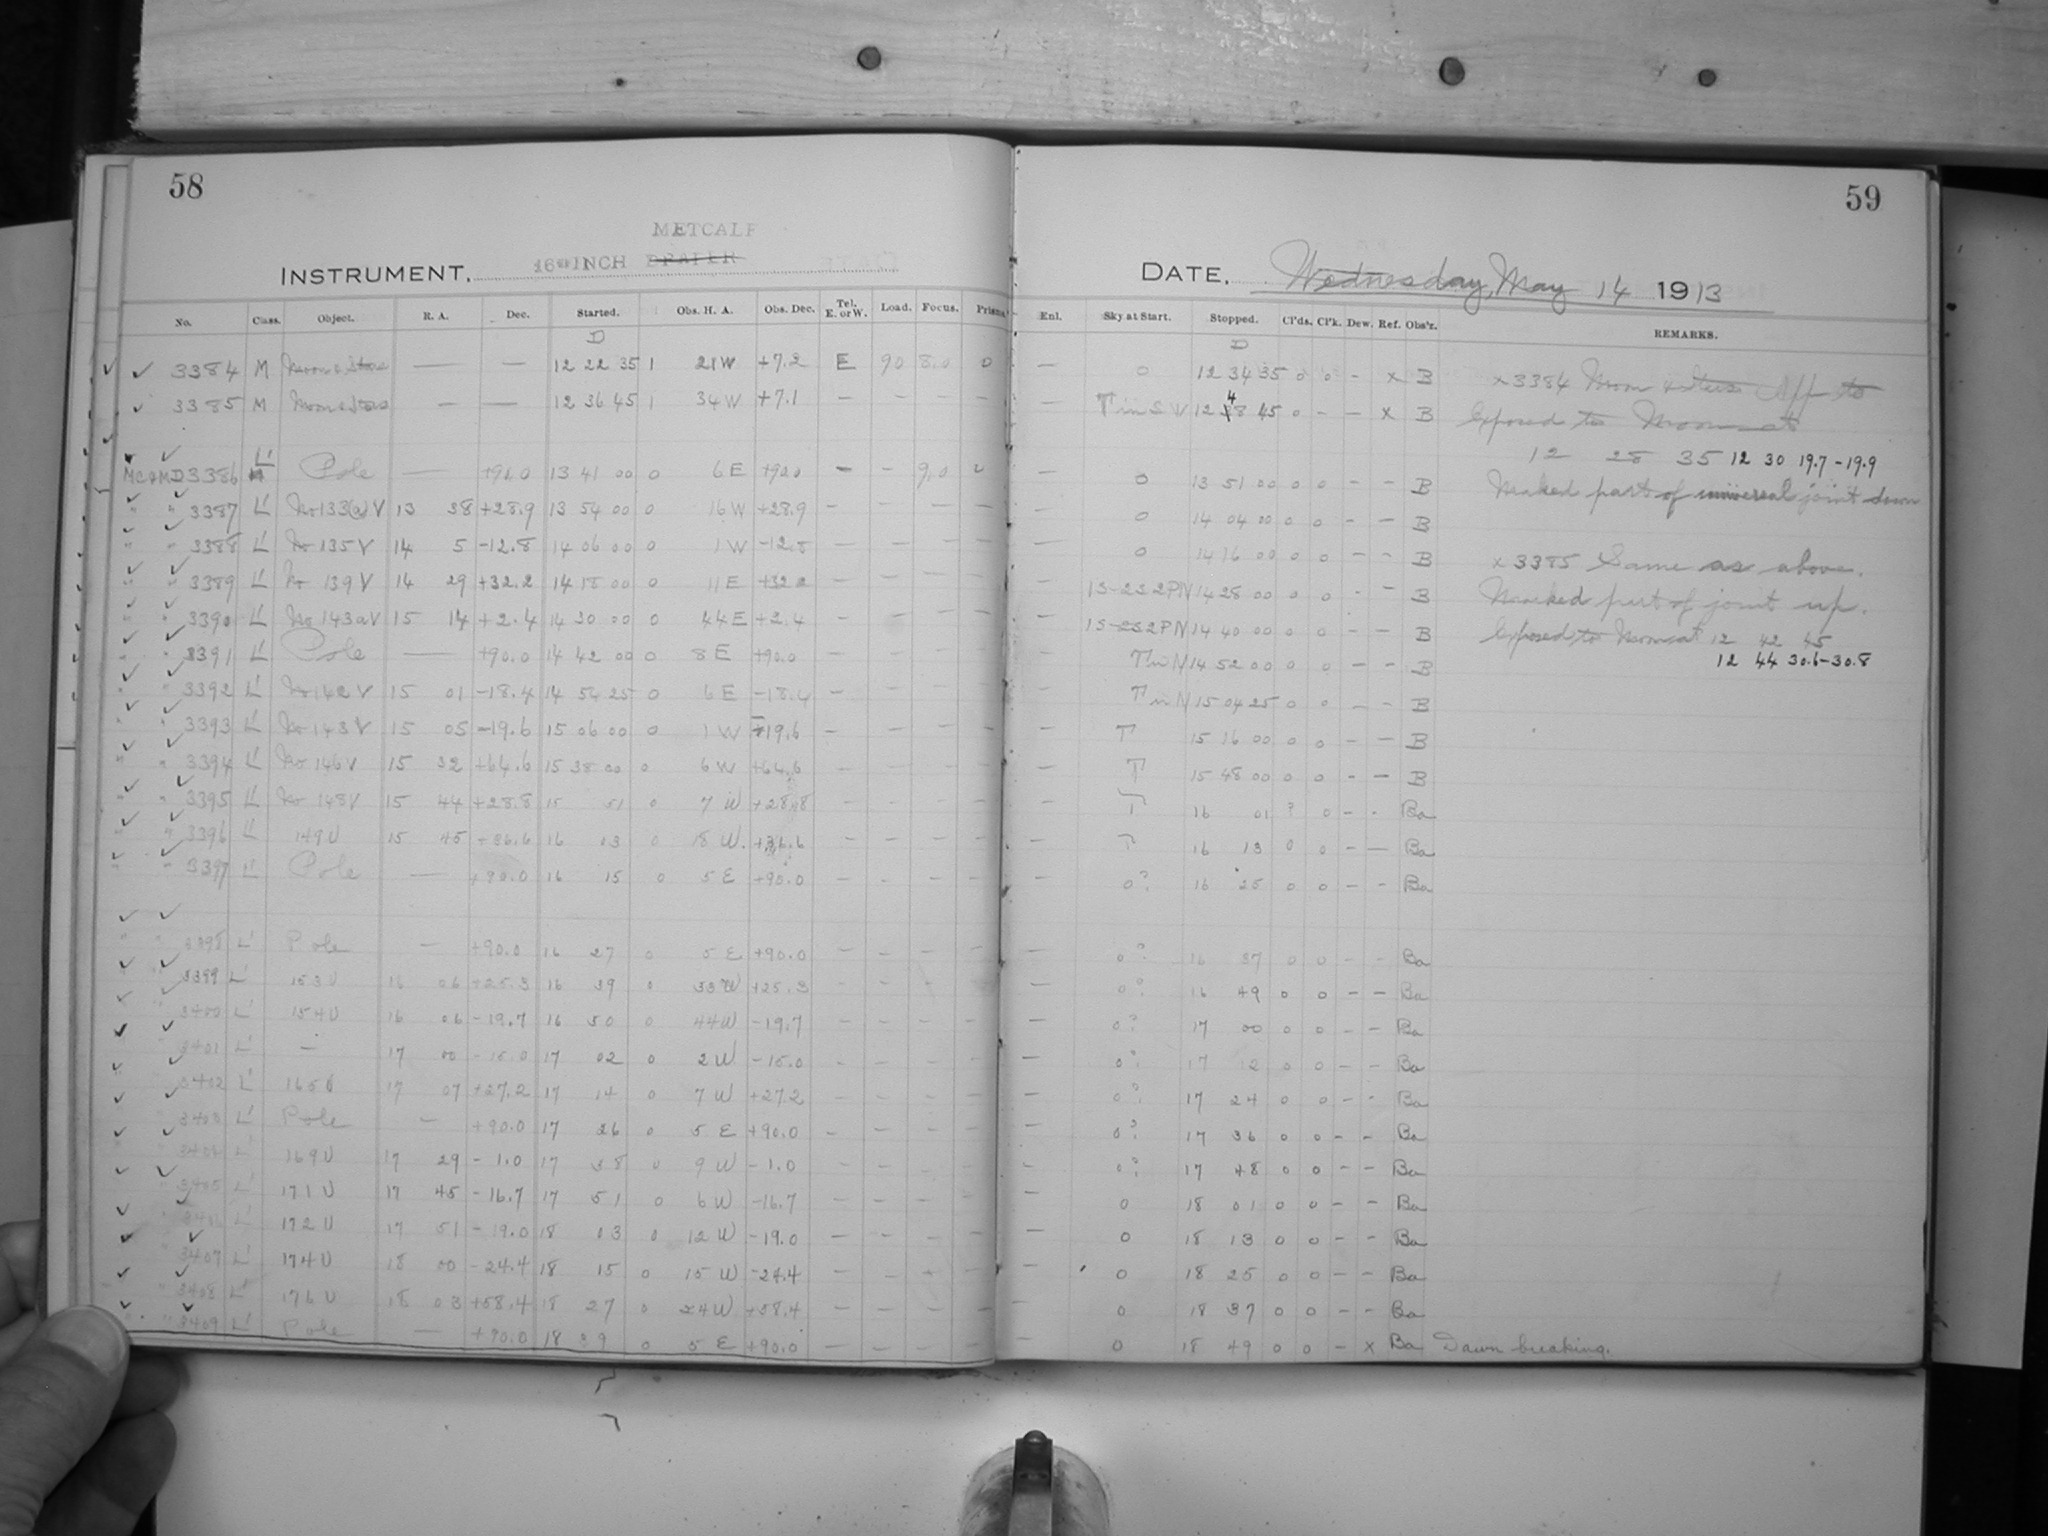 58
METCALF
INSTRUMENT. 16 INCH DRAPER
No. Class. Object. R. A. Dec. Started. Obs. H. A. Obs. Dec. Tel. E. or W. Load. Focus. Prisms.
D
3384 M Moon & Stars — — 12 22 35 1 21 W +7.2 E 90 8.0 0
3385 M Moon & Stars — — 12 36 45 1 34 W +7.1 — — — —
MC & MD 3386 L' Pole — +90.0 13 41 00 0 6 E +90.0 — — 9.0
" " 3387 L' No 133(a) V 13 38 +28.9 13 54 00 0 16 W +28.9 — — — —
" " 3388 L' No 135 V 14 5 -12.8 14 06 00 0 1 W -12.8 — — — —
" " 3389 L' No 139 V 14 29 +32.2 14 18 00 0 11 E +32.2 — — — —
" " 3390 L' No 143a V 15 14 +2.4 14 30 00 0 44 E +2.4 — — — —
" " 3391 L' Pole — +90.0 14 42 00 0 8 E +90.0 — — — —
" " 3392 L' No 142 V 15 01 -18.4 14 54 25 0 6 E -18.4 — — — —
" " 3393 L' No 143 V 15 05 -19.6 15 06 00 0 1 W -19.6 — — — —
" " 3394 L' No 146 V 15 32 +64.6 15 38 00 0 6 W +64.6 — — — —
" " 3395 L' No 148 V 15 44 +28.8 15 51 0 7 W +28.8 — — — —
" " 3396 L' 149 V 15 45 +36.6 16 03 0 18 W. +36.6 — — — —
" " 3397 L' Pole — +90.0 16 15 0 5 E +90.0 — — — —
" " 3398 L' Pole — +90.0 16 27 0 5 E +90.0 — — — —
" 3399 L' 153 V 16 06 +25.3 16 39 0 33 W +25.3 — — — —
" 3400 L' 154 V 16 06 -19.7 16 50 0 44 W -19.7 — — — —
" 3401 L' — 17 00 -15.0 17 02 0 2 W -15.0 — — — —
" 3402 L' 165 V 17 07 +27.2 17 14 0 7 W +27.2 — — — —
" 3403 L' Pole — +90.0 17 26 0 5 E +90.0 — — — —
" 3404 L' 169 V 17 29 -1.0 17 38 0 9 W -1.0 — — — —
" 3405 L' 171 V 17 45 -16.7 17 51 0 6 W -16.7 — — — —
" 3406 L' 172 V 17 51 -19.0 18 03 0 12 W -19.0 — — — —
" 3407 L' 174 V 18 00 -24.4 18 15 0 15 W -24.4 — — — —
" 3408 L' 176 V 18 03 +58.4 18 27 0 24 W +58.4 — — — —
" 3409 L' Pole — +90.0 18 39 0 5 E +90.0 — — — —
59
DATE. Wednesday, May 14 1913
Enl. Sky at Start. Stopped. Cl'ds. Cl'k. Dew. Ref. Obs'r. REMARKS.
D
— 0 12 34 35 0 0 - x B x 3384 Moon & Stars
— T in S V 12 48 45 0 — — x B Exposed to Moon at
12 28 35 12 30 19.7-19.9
— 0 13 51 00 0 0 - - B Marked part of universal joint down
— 0 14 04 00 0 0 - - B
— 0 14 16 00 0 0 - - B x 3385 Same as above.
— 1S-2S 2PN 14 28 00 0 0 - - B Marked part of joint up.
— 1S-2S 2PN 14 40 00 0 0 - - B Exposed to Moon at 12 42 45
12 44 30.6-30.8
— T in N 14 52 00 0 0 - - B
— T in N 15 04 25 0 0 - - B
— T 15 16 00 0 0 - - B
— T 15 48 00 0 0 - - B
— T 16 01 ? 0 - - Ba
— T 16 13 0 0 - - Ba
— 0? 16 25 0 0 - - Ba
— 0? 16 37 0 0 - - Ba
— 0? 16 49 0 0 - - Ba
— 0? 17 00 0 0 - - Ba
— 0? 17 12 0 0 - - Ba
— 0? 17 24 0 0 - - Ba
— 0? 17 36 0 0 - - Ba
— 0? 17 48 0 0 - - Ba
— 0 18 01 0 0 - - Ba
— 0 18 13 0 0 - - Ba
— 0 18 25 0 0 - - Ba
— 0 18 37 0 0 - - Ba
— 0 18 49 0 0 - x Ba Dawn breaking.